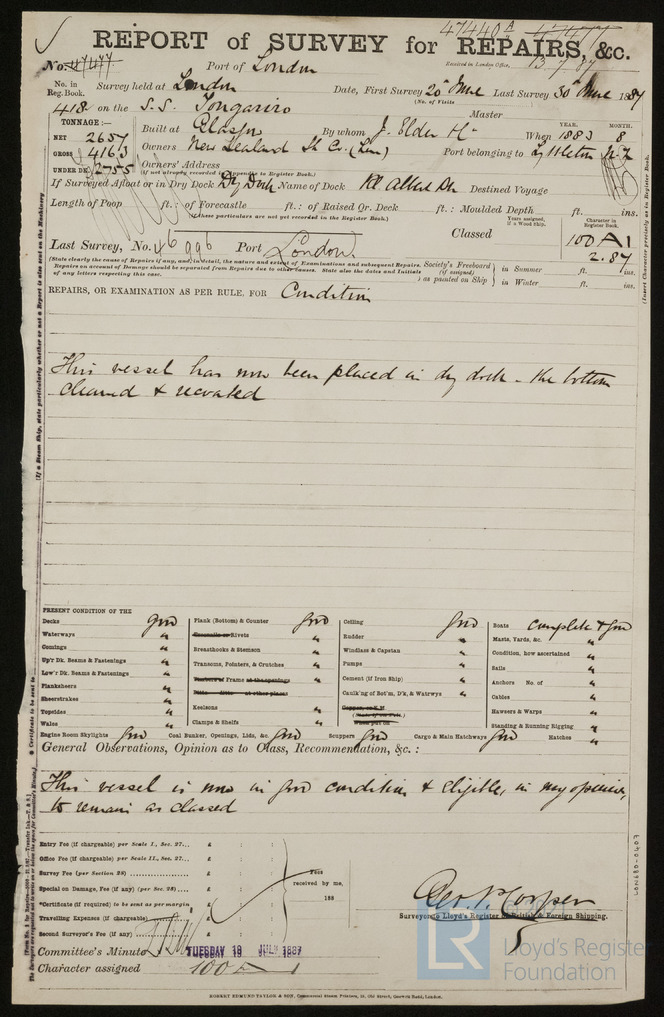 47440A 47477
REPORT of SURVEY for REPAIRS, &c.
No. 47477. Port of London Received in London Office, 13.7.87
No. in Reg. Book. Survey held at London Date, First Survey 20th June Last Survey 30th June 1887
(No. of Visits
418 on the S.S. Tongariro Master
TONNAGE:— Built at Glasgow By whom J. Elder & Co When 1883 YEAR. MONTH. 8
NET 2657
GROSS 4163 Owners New Zealand Sh Co. (Lim) Port belonging to Lyttleton N.Z
UNDER DK. 2755 Owners' Address
(if not already recorded in Appendix to Register Book.)
If Surveyed Afloat or in Dry Dock Dry Dock Name of Dock Rl Albert Dk Destined Voyage
Length of Poop ft.: of Forecastle ft.: of Raised Qr. Deck ft.: Moulded Depth ft. ins.
(If these particulars are not yet recorded in the Register Book.)
Years assigned, if a Wood Ship. Character in Register Book.
Last Survey, No. 46996 Port London. Classed 100 A 1
2.87
(State clearly the cause of Repairs if any, and, in detail, the nature and extent of Examinations and subsequent Repairs.
Repairs on account of Damage should be separated from Repairs due to other causes. State also the dates and Initials
of any letters respecting this case.
Society's Freeboard (if assigned) as painted on Ship } in Summer ft. ins.
in Winter ft. ins.
REPAIRS, OR EXAMINATION AS PER RULE, FOR Condition
This vessel has now been placed in dry dock - the bottom
cleaned & recoated
PRESENT CONDITION OF THE
Decks good Plank (Bottom) & Counter good Ceiling good Boats complete & good
Waterways " Treenails or Rivets " Rudder " Masts, Yards, &c. "
Comings " Breasthooks & Stemson " Windlass & Capstan " Condition, how ascertained "
Up'r Dk. Beams & Fastenings " Transoms, Pointers, & Crutches " Pumps " Sails "
Low'r Dk. Beams & Fastenings " Timbers of Frame at the openings " Cement (if Iron Ship) " Anchors No. of "
Planksheers " Ditto ditto at other places Caulk'g of Bot'm, D'k, & Watrwys " Cables "
Sheerstrakes "
Topsides " Keelsons " Hawsers & Warps "
Wales " Clamps & Shelfs " Standing & Running Rigging "
Engine Room Skylights good Coal Bunker, Openings, Lids, &c. good Scuppers good Cargo & Main Hatchways good Hatches "
General Observations, Opinion as to Class, Recommendation, &c.:
This vessel is now in good condition & eligible, in my opinion,
to remain as classed
Entry Fee (if chargeable) per Scale I., Sec. 27... £ : :
Office Fee (if chargeable) per Scale II., Sec. 27... £ : :
Survey Fee (per Section 28) £ : :
Special on Damage, Fee (if any) (per Sec. 28) £ : :
Certificate (if required) to be sent as per margin £ : :
Travelling Expenses (if chargeable) £ : :
Second Surveyor's Fee (if any) £ : :
Fees received by me, 188
Geo. P. Cooper
Surveyor to Lloyd's Register of British & Foreign Shipping.
Committee's Minute TUESDAY 19 JULY 1887
Character assigned 100 A 1
ROBERT EDMUND TAYLOR & SON, Commercial Steam Printers, 19, Old Street, Goswell Road, London.
LON680-0407
LR
Lloyd's Register
Foundation